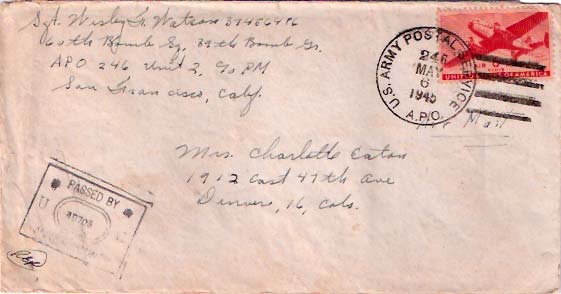 Sgt. Wesley G. Watson 37486496
60th Bomb Sq. 39th Bomb Gr.
APO 246 Unit 2, % PM
San Francisco, Calif.
U.S. ARMY POSTAL SERVICE
246
MAY
6
1945
A.P.O.
AIR 6
UNITED STATES OF AMERICA
Air Mail
Mrs. Charlotte Eaton
1912 East 47th Ave
Denver, 16, Colo.
PASSED BY
U